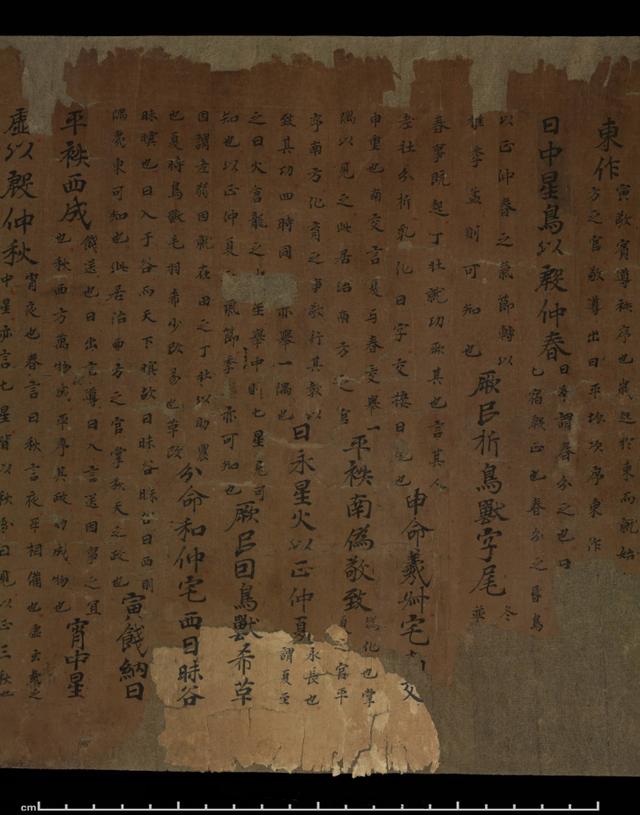 東作
寅敬賓導秩序也歲起於東而就始
方之官敬導出日平均次序東作
日中星鳥以殷仲春
日中謂春分之日
七宿殷正也春分之昏鳥
以正仲春之氣節轉以
推季孟則可知也
厥民析鳥獸字尾
冬
春事既起丁壯就功厥其也言其人
老壯分析乳化曰字交接曰尾也
申命羲叔宅 交
申重也南交言夏与春交舉一
隅以見之此居治南方之官
平秩南僞敬致
化也掌
夏之官平
序南方化育之事敬行其教以
致其功四時同 亦舉一隅也
日永星火以正仲夏
永長也
謂夏至
之日火蒼龍之中星舉中則七星見可
知也以正仲夏之氣節季 亦可知也
厥民因鳥獸希革
因謂老弱因就在田之丁壯以助農
也夏時鳥獸毛羽希少改易也革改
分命和仲宅西曰昧谷
昧暝也日入于谷而天下暝故曰昧谷昧谷曰西則
隅夷東可知也此居治西方之官掌秋天之政也
寅餞納日
平秩西成
餞送也日出言導日入言送因事之宜
也秋西方萬物成平序其政功成物也
宵中星
虛以殷仲秋
宵夜也春言日秋言夜互相備也虛玄武之
中星亦言七星皆以秋分日見以正三秋也